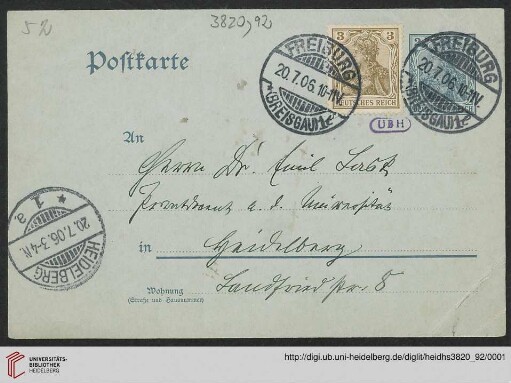 52
3820,92
Postkarte
3
DEUTSCHES REICH
FREIBURG
20.7.06.10-11V.
*(BREISGAU)1.
FREIBURG
20.7.06.10-11V.
(BREISGAU)1.
UBH
An
Herrn Dr. Emil Lask
Privatdozent a. d. Universität
* 1. a
20.7.06.3-4N.
HEIDELBERG
in Heidelberg
Wohnung
(Straße und Hausnummer)
Landfriedstr. 8
UNIVERSITÄTS-
BIBLIOTHEK
HEIDELBERG
http://digi.ub.uni-heidelberg.de/diglit/heidhs3820_92/0001